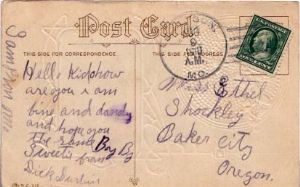 Post Card
THIS SIDE FOR CORRESPONDENCE.
THIS SIDE IS FOR THE ADDRESS.
Hello kid how
are you I am
fine and dandy
and hope you
the same Bay By
Sweets from
Dick
A.M.
MO.
Miss Ethel
Shockley
Baker City
Oregon.